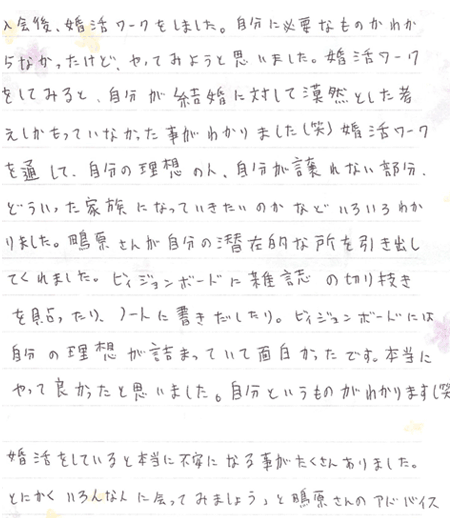 入会後、婚活ワークをしました。自分に必要なものかわか
らなかったけど、やってみようと思いました。婚活ワーク
をしてみると、自分が結婚に対して漠然とした考
えしかもっていなかった事がわかりました(笑)婚活ワーク
を通して、自分の理想の人、自分が譲れない部分、
どういった家族になっていきたいのかなどいろいろわか
りました。鴫原さんが自分の潜在的な所を引き出し
てくれました。ビィジョンボードに雑誌の切り抜き
を貼ったり、ノートに書きだしたり。ビィジョンボードには
自分の理想が詰まっていて面白かったです。本当に
やって良かったと思いました。自分というものがわかります(笑
婚活をしていると本当に不安になる事がたくさんありました。
とにかくいろんな人に会ってみましょう」と鴫原さんのアドバイス